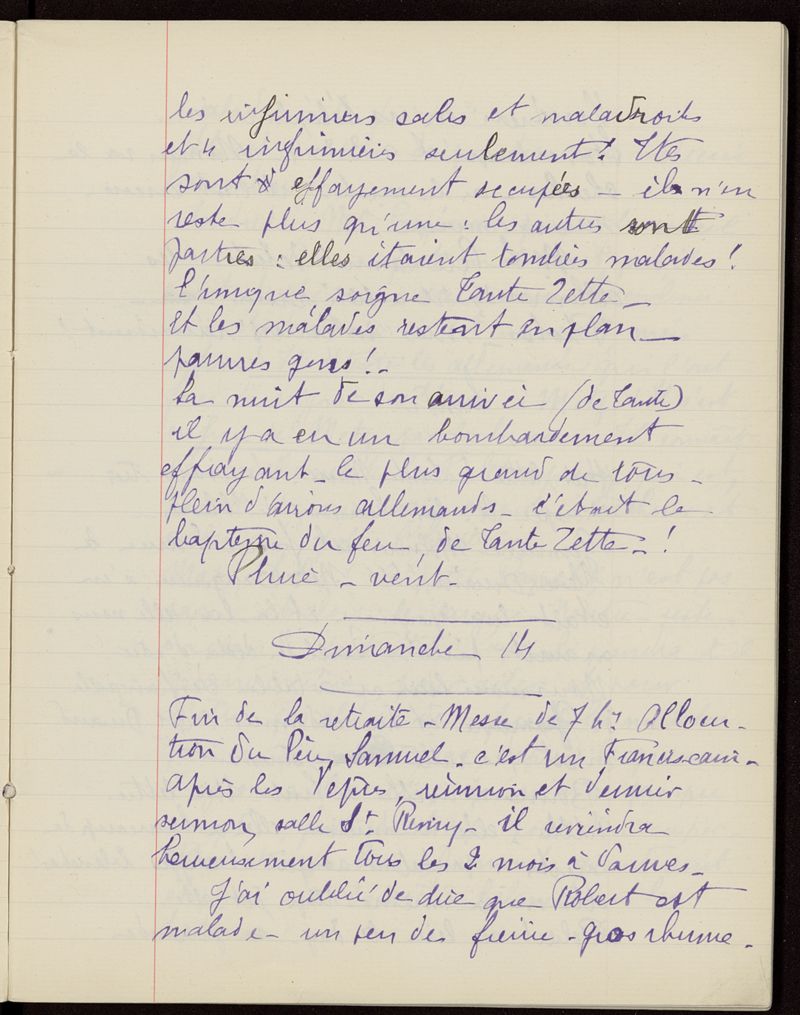 les infirmiers sales et maladroits
et 4 infirmières seulement ! Elles
sont effrayement occupées – il n'en
reste plus qu'une : les autres sont
parties : elles étaient tombées malades !
L'unique soigne Tante Zette –
Et les malades restent en plan –
pauvres gens ! –
La nuit de son arrivée (de Tante)
il y a eu un bombardement
effrayant – le plus grand de tous –
plein d'avions allemands – c'était le
baptême du feu, de Tante Zette – !
Pluie – vent –
Dimanche 14
Fin de la retraite – Messe de 7 h ½ Allocu-
tion du Père Samuel – c'est un Franciscain –
Après les Vêpres, réunion et dernier
sermon, salle St – il reviendra
heureusement tous les 2 mois à
J'ai oublié de dire que Robert est
malade – un peu de fièvre – gros rhume –